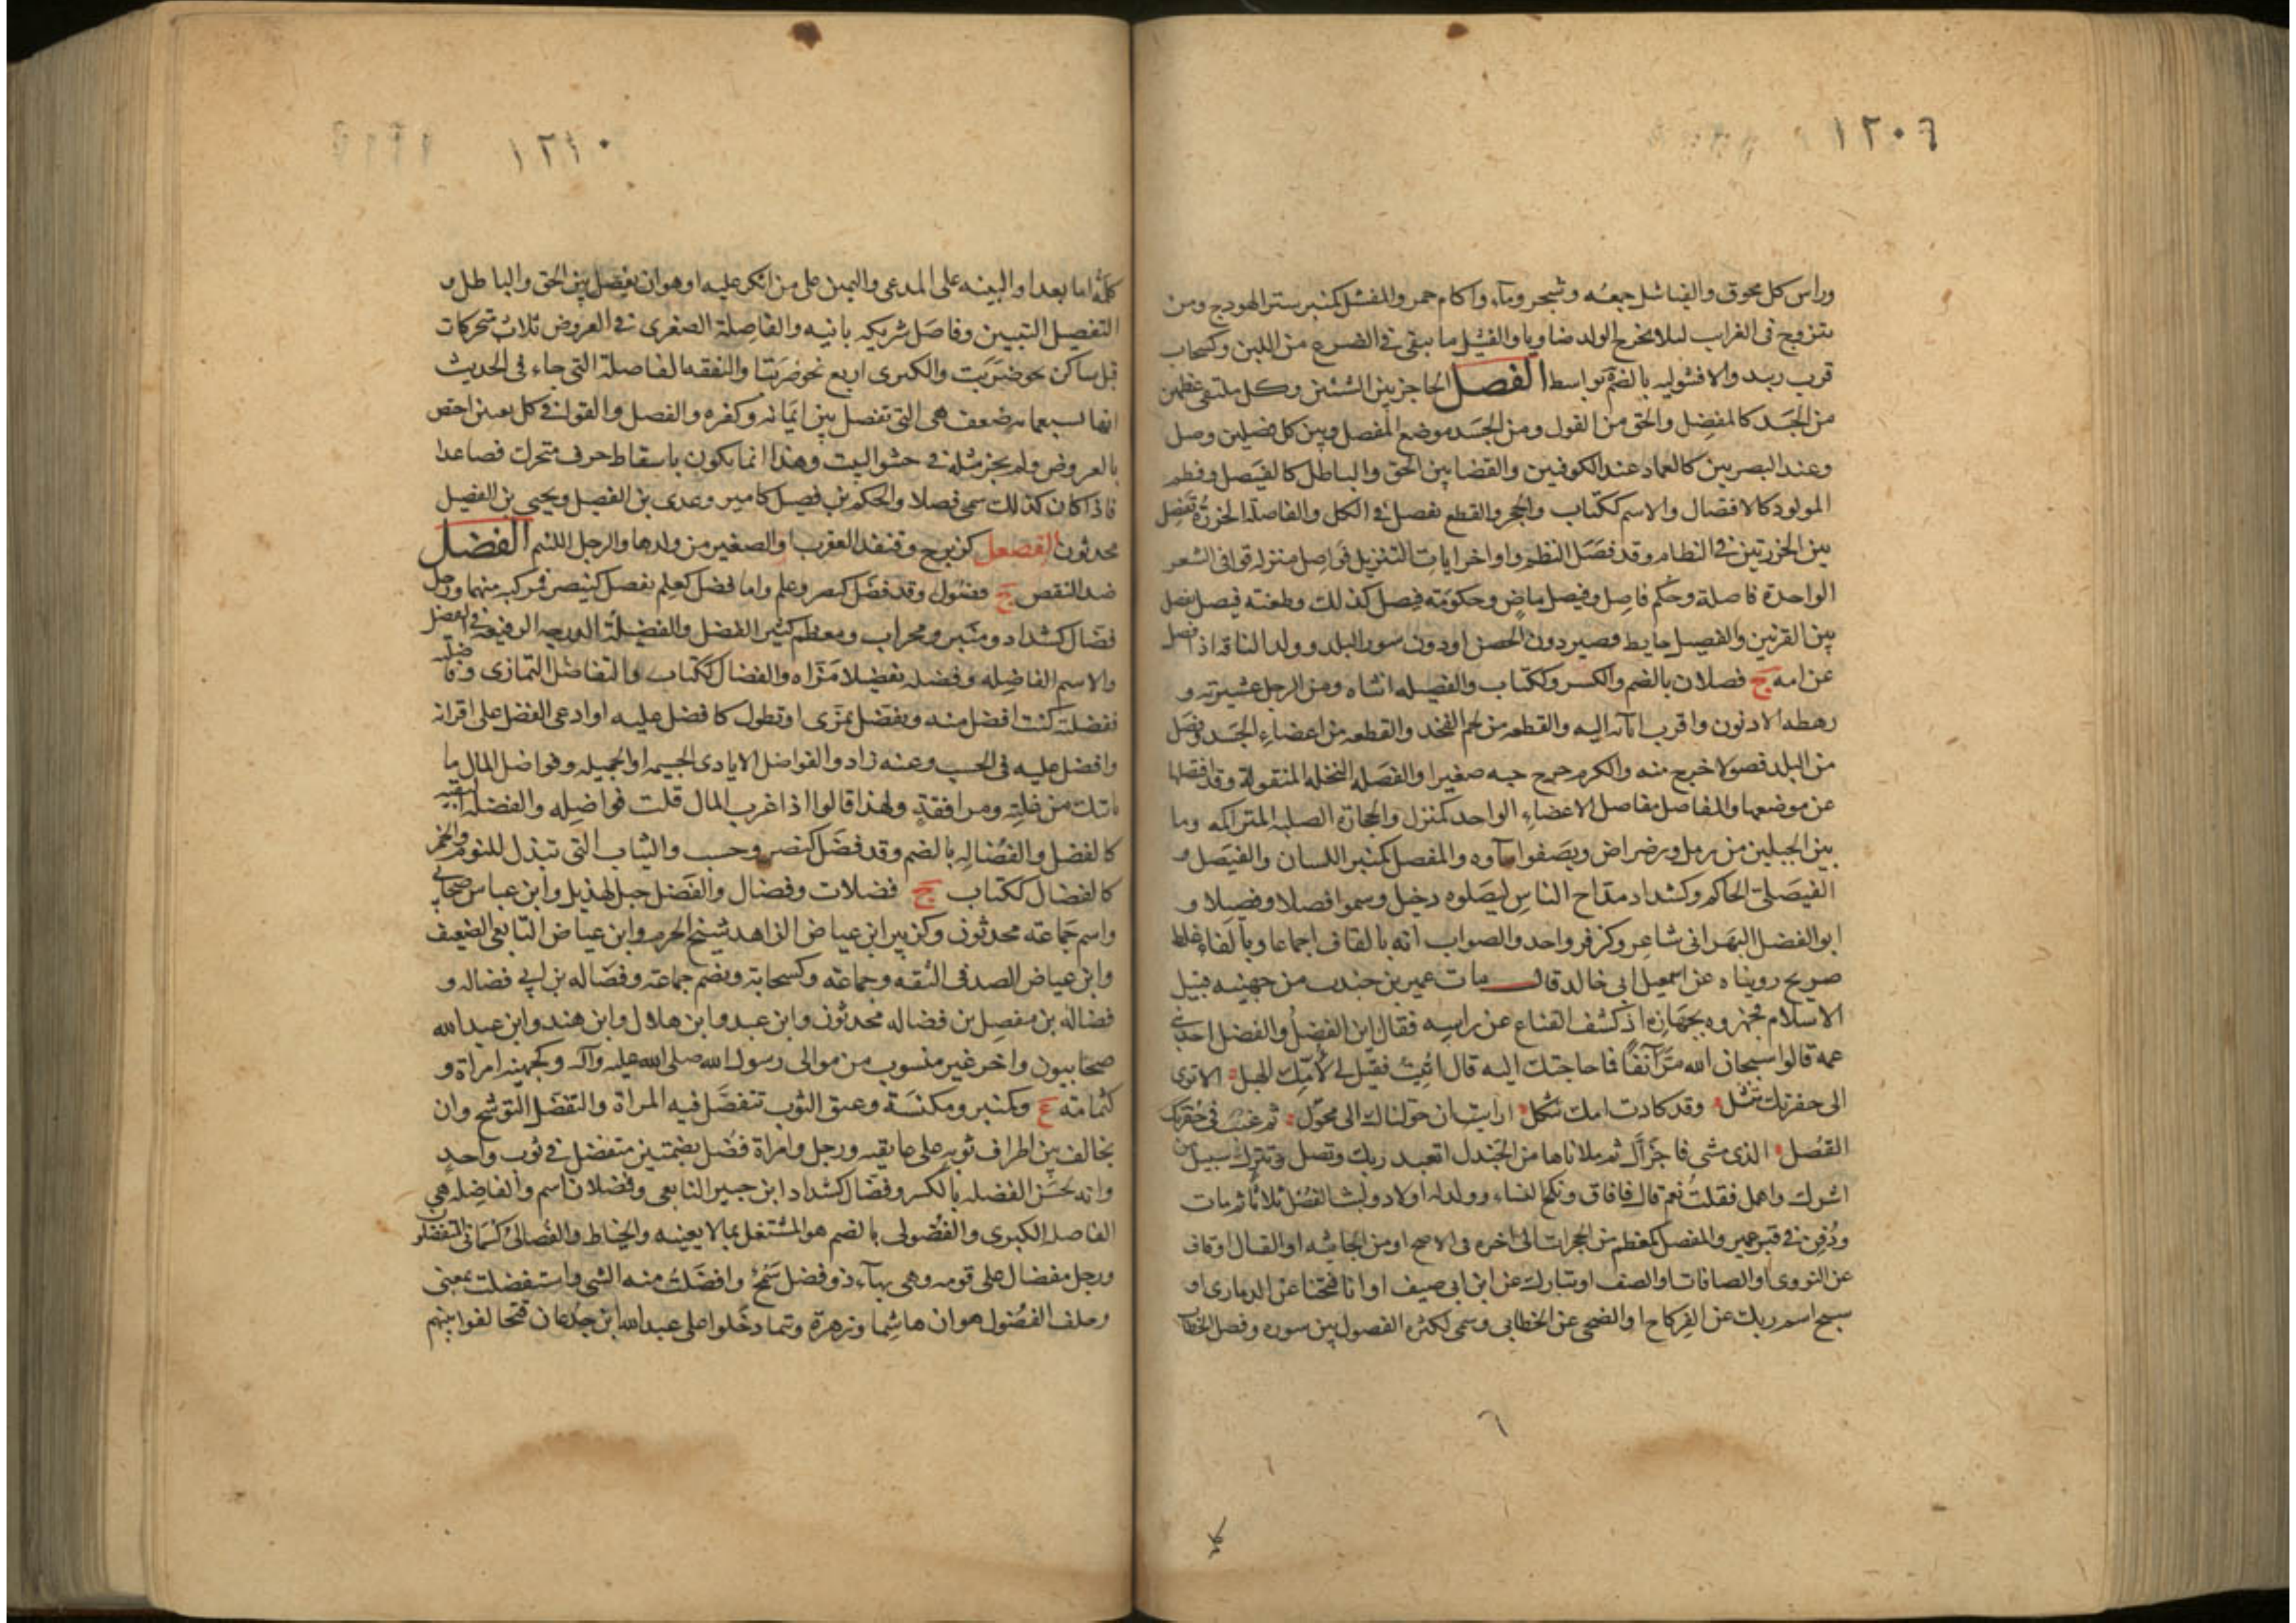 ١٢٠٦
وراس كل محوق والفياشل جمعه وشجر وماء واكام حمر والمفشل كمنبر ستر الهودج ومن
يتزوج فى الغراب لئلا يخرج الولد ضاويا والفشل ما يبقى فى الضرع من اللبن وكسحاب
قرب زبيد والافشوليه بالضم بواسط الفصل الحاجز بين الشئين وكل ملتقى عظمين
من الجسد كالمفصل والحق من القول ومن الجسد موضع المفصل وبين كل فصلين وصل
وعند البصريين كالعماد عند الكوفيين والقضا بين الحق والباطل كالفيصل وفطم
المولود كالافتصال والاسم ككتاب والحجر والقطع يفصل فى الكل والفاصلة الخرزة تفصل
بين الخرزتين فى النظام وقد فصل النظم واواخر ايات التنزيل فواصل منزله قوافى الشعر
الواحدة فاصلة وحكم فاصل وفيصل ماض وحكومة فيصل كذلك وطعنه فيصل تفصل
بين القرنين والفصيل حايط قصير دون الحصن او دون سور البلد وولد الناقه اذا فصل
عن امه ج فصلان بالضم والكسر وككتاب والفصيله انثاه ومن الرجل عشيرته و
رهطه الادنون واقرب ابائه اليه والقطعه من لحم الفخذ والقطعه من اعضاء الجسد وفصل
من البلد فصولا خرج منه والكرم خرج حبه صغيرا والفصله النخله المنقولة وقد افتصلها
عن موضعها والمفاصل مفاصل الاعضاء الواحد كمنزل والحجارة الصلبه المتراكمه وما
بين الجبلين من رمل ورضراض ويصفو ماوه والمفصل كمنبر اللسان والفيصل و
الفيصلى الحاكم وكشداد مداح الناس ليصلوه دخيل وسموا فصلا وفصيلا و
ابو الفضل البهرانى شاعر وكزفر واحد والصواب انه بالقاف اجماعا وبالفاء غلط
صريح رويناه عن اسمعيل ابى خالد قال مات عمير بن جندب من جهينه قبيل
الاسلام فجهزوه بجهازه اذ كشف القناع عن راسه فقال اين الفصل والفصل احد بنى
عمه قالوا سبحان الله مر آنفا فما حاجتك اليه قال اتيت فقيل لى لامك الهبل الا ترى
الى حفرتك تنثل وقد كادت امك تثكل ارايت ان حولناك الى محول ثم غيب فى حفرتك
القصل الذى مشى فاجزأل ثم ملاناها من الجندل اتعبد ربك وتصل وتترك سبيل من
اشرك واضل فقلت نعم قال فافاق ونكح النساء وولد له اولاد ولبث الفصل ثلاثا ثم مات
ودفن فى قبر عمير والمفصل كمعظم من الحجرات الى اخره فى الاصح او من الجاثيه او القتال او قاف
عن النووى او الصافات او الصف او تبارك عن ابن ابى صيف او انا فتحنا عن الدمارى او
سبح اسم ربك عن الفركاح او الضحى عن الخطابى وسمى لكثره الفصول بين سوره وفصل الخطاب
١٢١٠
كلمة اما بعد او البينه على المدعى واليمين على من انكر عليه او هو ان يفصل بين الحق والباطل و
التفصيل التبيين وفاصل شريكه باينه والفاصلة الصغرى فى العروض ثلاث متحركات
قبل ساكن نحو ضربت والكبرى اربع نحو ضربتا والنفقه الفاصلة التى جاء فى الحديث
انها بسبعمايه ضعف هى التى تفصل بين ايمانه وكفره والفصل والقول فى كل بعينى اختص
بالعروض ولم يجز مثله فى حشو البيت وهذا انما يكون باسقاط حرف متحرك فصاعدا
فاذا كان كذلك سمى فصلا والحكم بن فصيل كامير وعدى بن الفصيل ويحيى بن الفصيل
محدثون الفصعل كزبرج وقنفذ العقرب او الصغير من ولدها والرجل اللئيم الفضل
ضد النقص ج فضول وقد فضل كنصر وعلم واما فضل كعلم يفضل كينصر فمركبه منهما ورجل
فضال كشداد ومنبر ومحراب ومعظم كثير الفضل والفضيلة الدرجه الرفيعه فى الفضل
والاسم الفاضله وفضله تفضيلا مزاه والفضال ككتاب والتفاضل التمازى وفاضله
ففضلته كنت افضل منه وتفضل تمزى او تطول كافضل عليه او ادعى الفضل على اقرانه
وافضل عليه فى الحسب وعنه زاد والفواضل الايادى الجسيمه او الجميله وفواضل المال ما
ياتيك من غلته ومرافقه ولهذا قالوا اذا غرب المال قلت فواضله والفضله البقيه
كالفضل والفضاله بالضم وقد فضل كنصر وحسب والثياب التى تبذل للنوم والخمر
كالفضال ككتاب ج فضلات وفضال والفضل جبل لهذيل وابن عباس صحابى
واسم جماعته محدثون وكزبير ابن عياض الزاهد شيخ الحرم وابن عياض التابعى الضعيف
وابن عياض الصدفى الثقه وجماعته وكسحابة ويضم جماعته وفضاله بن ابى فضاله و
فضاله بن مفضل بن فضاله محدثون وابن عبد وابن هلال وابن هند وابن عبدالله
صحابيون واخر غير منسوب من موالى رسول الله صلى الله عليه وآله وكجهينه امراة و
كثمامته ع وكمنبر ومكنسة وعنق الثوب تتفضل فيه المراة والتفضل التوشح وان
يخالف بين اطراف ثوبه على عاتقيه ورجل وامراة فضل بضمتين متفضل فى ثوب واحد
وانه لحسن الفضله بالكسر وفضال كشداد ابن جبير التابعى وفضلان اسم والفاضله هى
الفاصله الكبرى والفضولى بالضم هو المشتغل بما لا يعنيه والخياط والفضالى كثمانى المتفضلون
ورجل مفضال على قومه وهى بهاء ذو فضل سمح وافضلت منه الشى واستفضلت بمعنى
وحلف الفضول هو ان هاشما وزهرة وتيما دخلوا على عبدالله ابن جدعان فتحالفوا بينهم